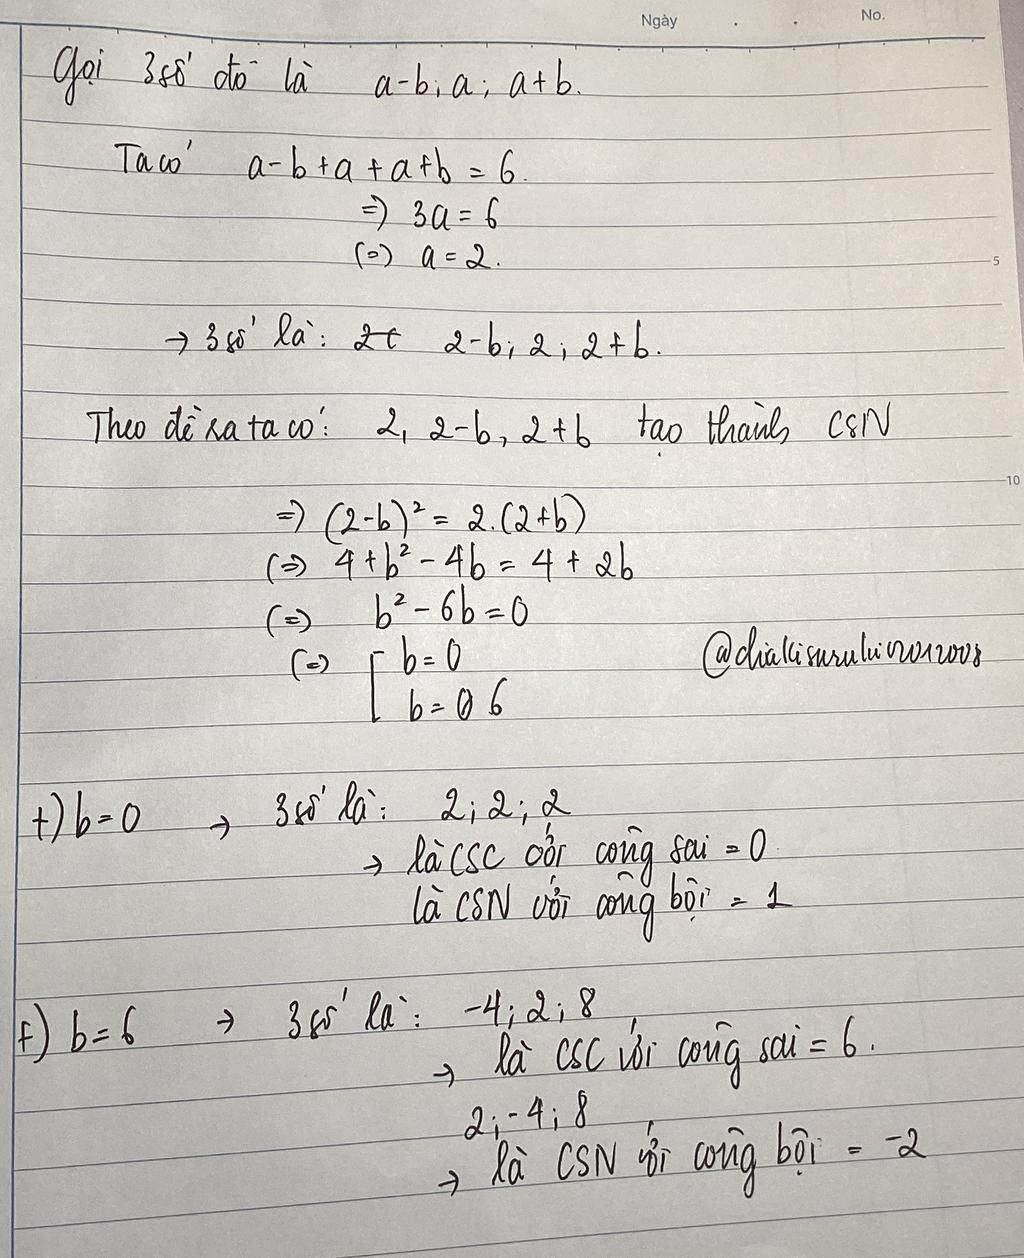 Ngày . . No.
Gọi 3 số đó là a-b; a; a+b.
Ta có a-b+a+a+b = 6.
=> 3a = 6
(=) a = 2.
5
→ 3 số là: 2-b; 2; 2+b.
Theo đề ra ta có: 2, 2-b, 2+b tạo thành CSN
10
=> (2-b)² = 2.(2+b)
(=) 4+b²-4b = 4+2b
(=) b²-6b=0
(=) [ b=0
b= 6
+) b=0 → 3 số là: 2; 2; 2
→ là CSC với công sai = 0
là CSN với công bội = 1
+) b=6 → 3 số là: -4; 2; 8
→ là CSC với công sai = 6.
2; -4; 8
→ là CSN với công bội = -2